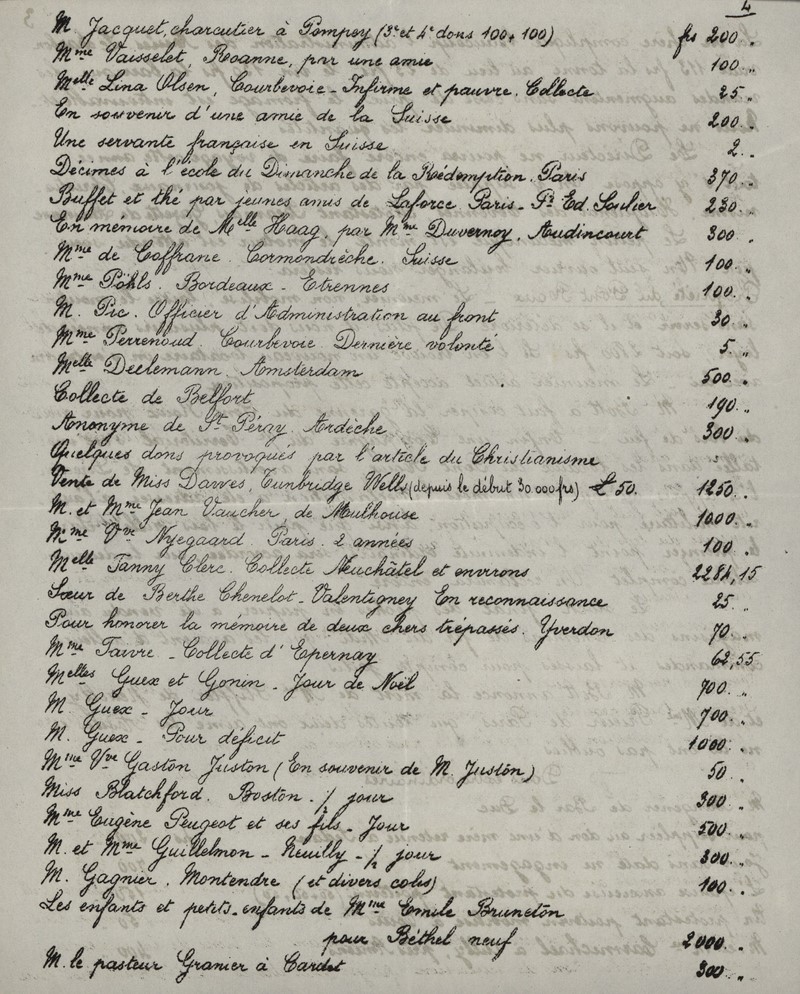 4
M. Jacquet, charcutier à Pompey (3e et 4e dons 100 + 100) frs 200 „
Mme Vaisselet, Roanne, par une amie 100 „
Melle Lina Olsen, Courbevoie - Infirme et pauvre. Collecte 25 „
En souvenir d'une amie de la Suisse 200 „
Une servante française en Suisse 2 „
Décimes à l'école du Dimanche de la Rédemption. Paris 370 „
Buffet et thé par jeunes amis de Laforce Paris - Pr Ed. Soulier 230 „
En mémoire de Melle Haag, par Mme Duvernoy, Audincourt 300 „
Mme de Coffrane. Cormondrèche. Suisse 100 „
Mme Pöhls. Bordeaux - Etrennes 100 „
M. Pic. Officier d'Administration au front 30 „
Mme Perrenoud. Courbevoie. Dernière volonté 5 „
Melle Deelemann. Amsterdam 500 „
Collecte de Belfort 190 „
Anonyme de St Péray. Ardèche 300 „
Quelques dons provoqués par l'article du Christianisme
Vente de Miss Dawes, Tunbridge Wells (depuis le début 30.000 frs) £ 50. 1250 „
M. et Mme Jean Vaucher, de Mulhouse 1000 „
Mme Vve Nyegaard. Paris. 2 années 100 „
Melle Fanny Clerc. Collecte Neuchâtel et environs 2284,15
Sœur de Berthe Chenelot - Valentigney En reconnaissance 25 „
Pour honorer la mémoire de deux chers trépassés. Yverdon 70 „
Mme Faivre - Collecte d'Epernay 62,55
Melles Guex et Gonin - Jour de Noël 700 „
M. Guex - Jour 700 „
M. Guex - Pour déficit 1000 „
Mme Vve Gaston Juston (En souvenir de M. Juston) 50 „
Miss Blatchford. Boston. / jour 300 „
Mme Eugène Peugeot et ses fils - Jour 500 „
M. et Mme Guillelmon - Neuilly - ½ jour 300 „
M. Gagnier. Montendre (et divers colis) 100 „
Les enfants et petits-enfants de Mme Emile Bruneton
pour Béthel neuf 2000 „
M. le pasteur Granier à Cardet 300 „